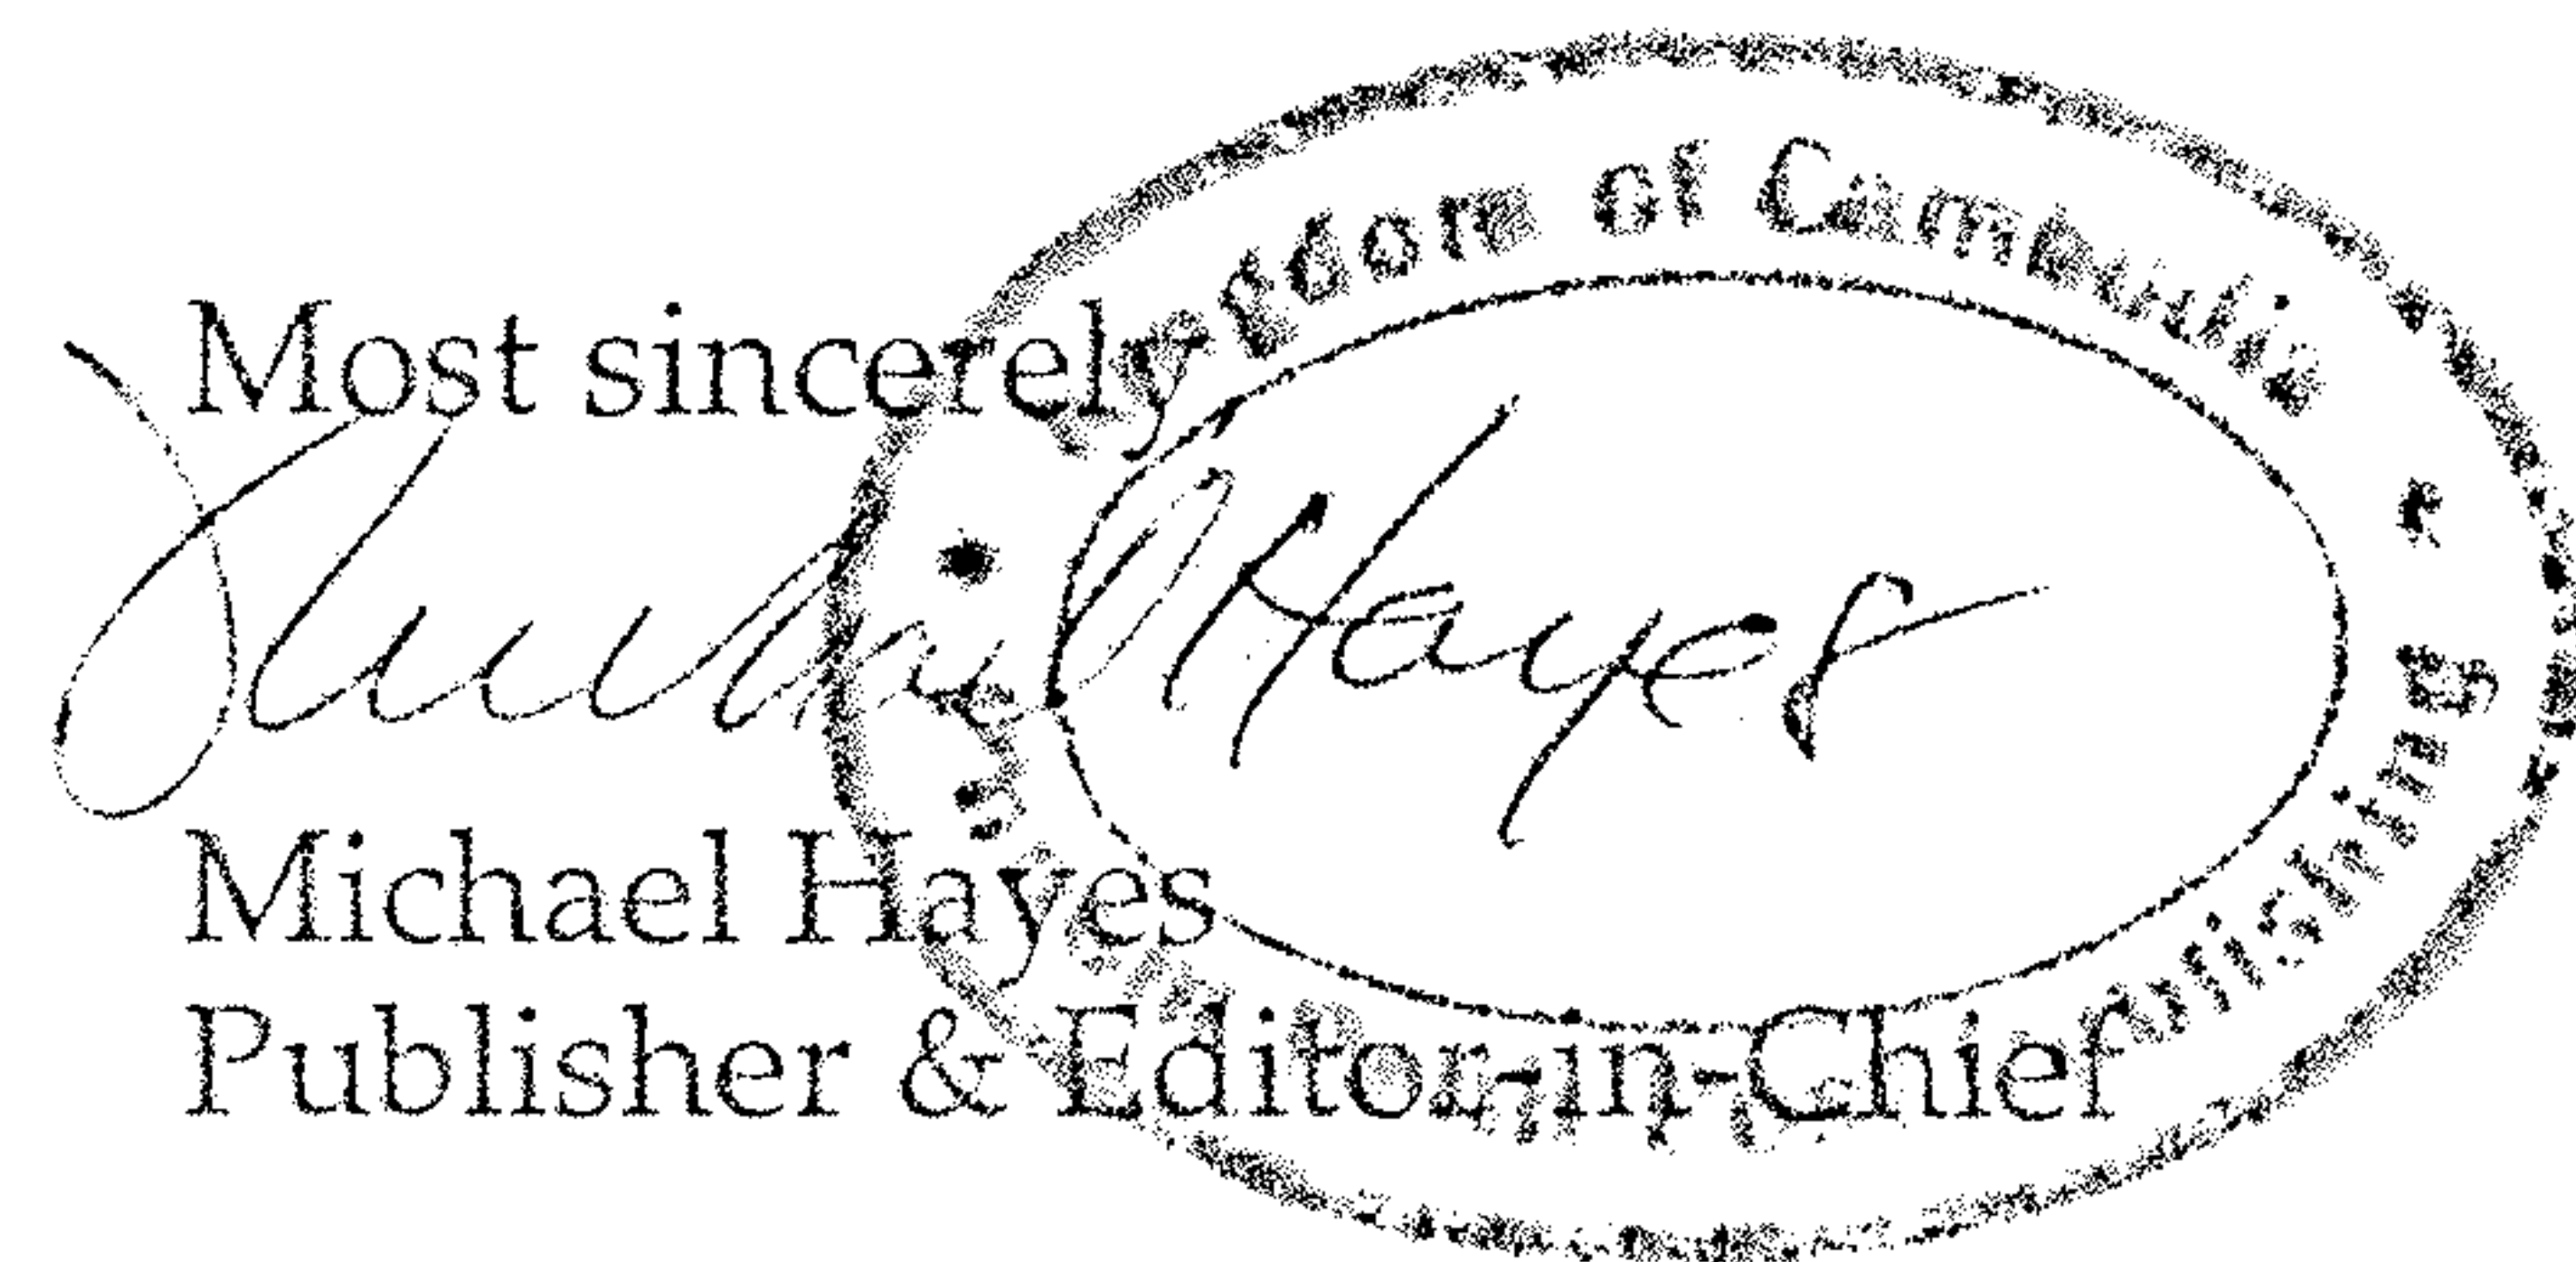 Most sincerely
Michael Hayes
Michael Hayes
Publisher & Editor-in-Chief
of Cambodia